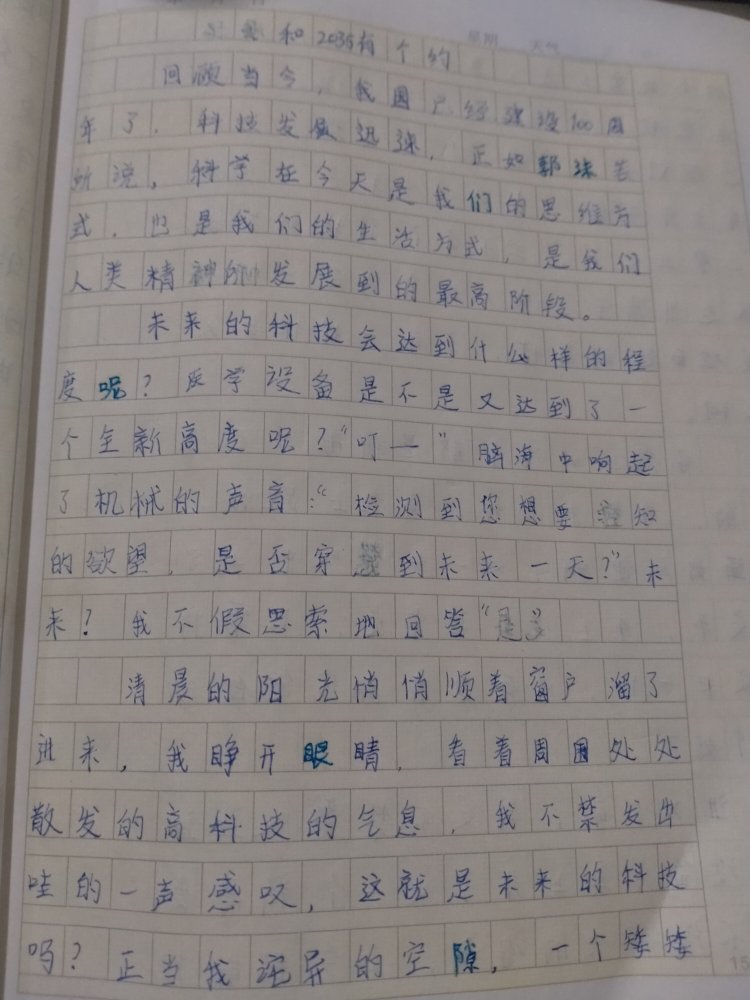 星期 天气
和2035有个约
回顾当今，我国已经建设100周
年了，科技发展迅速，正如郭沫若
所说，科学在今天是我们的思维方
式，也是我们的生活方式，是我们
人类精神所发展到的最高阶段。
未来的科技会达到什么样的程
度呢？医学设备是不是又达到了一
个全新高度呢？“叮一”脑海中响起
了机械的声音：“检测到您想要知
的欲望，是否穿越到未来一天？”未
来？我不假思索地回答“是”
清晨的阳光悄悄顺着窗户溜了
进来，我睁开眼睛，看着周围处处
散发的高科技的气息，我不禁发出
哇的一声感叹，这就是未来的科技
吗？正当我诧异的空隙，一个矮矮